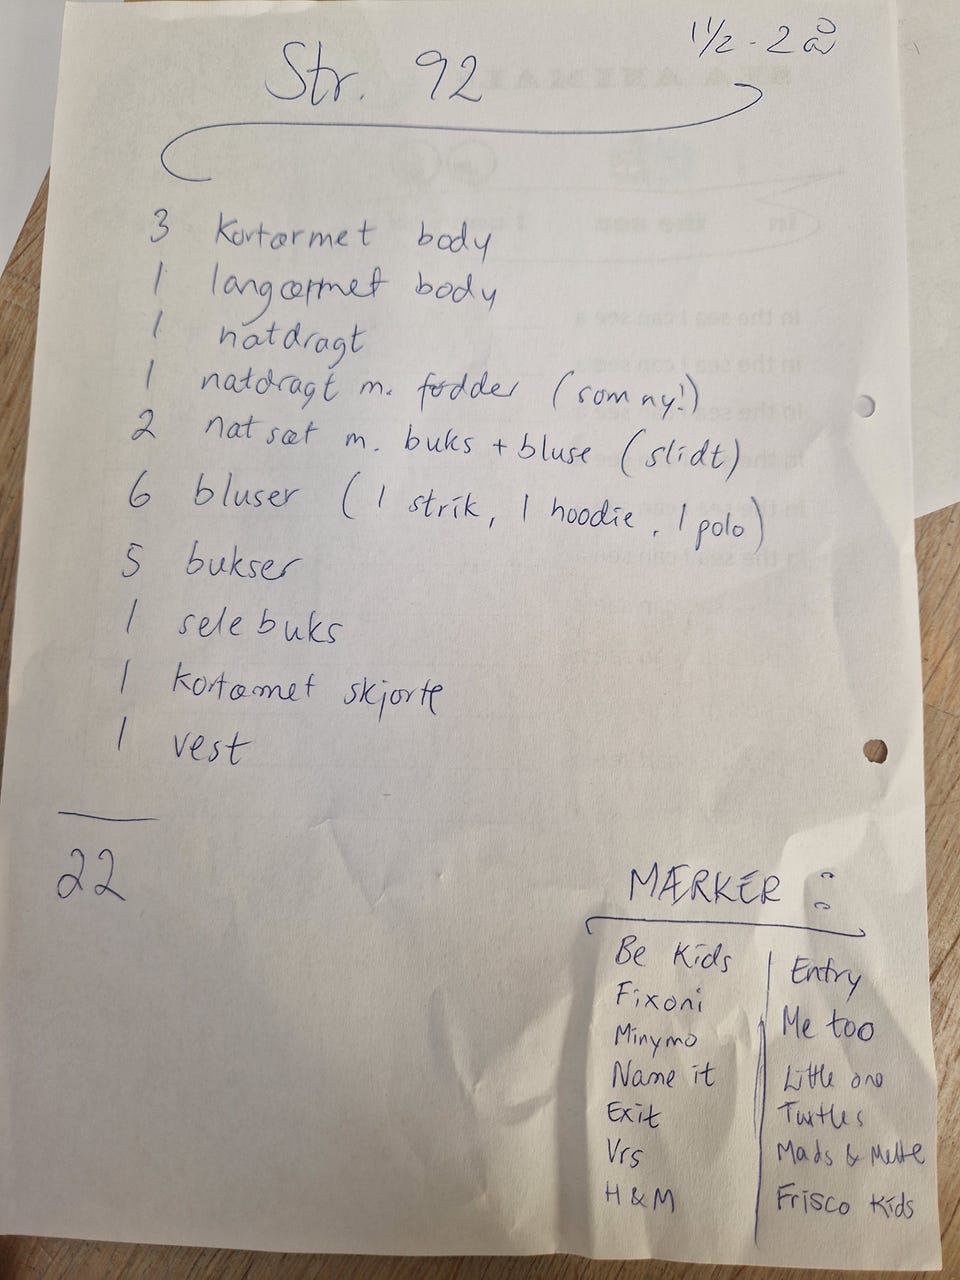 1 1/2 - 2 år
Str. 92
3 kortærmet body
1 langærmet body
1 natdragt
1 natdragt m. fødder (som ny!)
2 nat sæt m. buks + bluse (slidt)
6 bluser (1 strik, 1 hoodie, 1 polo)
5 bukser
1 sele buks
1 kortærmet skjorte
1 vest
22
MÆRKER:
Be Kids
Fixoni
Minymo
Name it
Exit
Vrs
H&M
Entry
Me too
Little one
Turtles
Mads & Mette
Frisco Kids